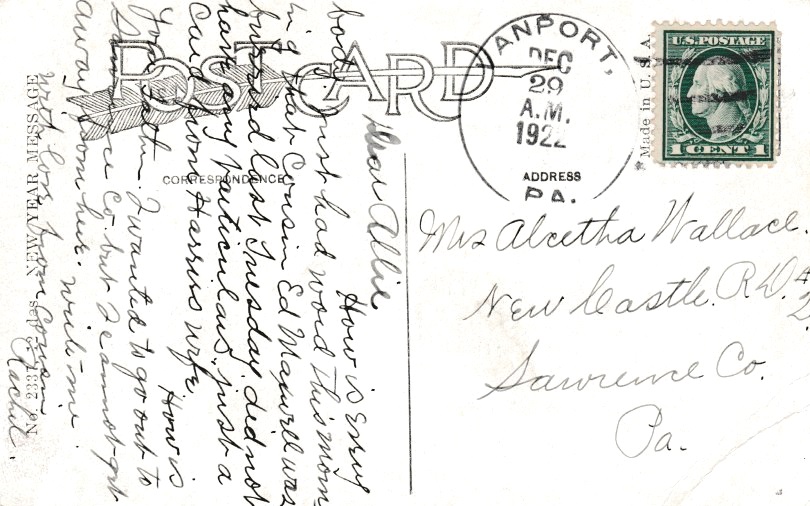 POST CARD
CORRESPONDENCE
ADDRESS
Made in U.S.A.
NEW YEAR MESSAGE
VANPORT,
DEC
29
A.M.
1922
PA.
U.S. POSTAGE
1 CENT 1
Dear Allie
How is Every
body Just had word this morn
ing that Cousin Ed Maxwell was
burried last Tuesday. did not
have any Particulars. just a
Card from Harris wife. How is
your Path. I wanted to go out to
Lawrence Co. but I cannot get
away from here. write me.
with love from Cousin
Rachel.
Mrs Alcetha Wallace.
New Castle. R D.
Lawrence Co.
Pa.